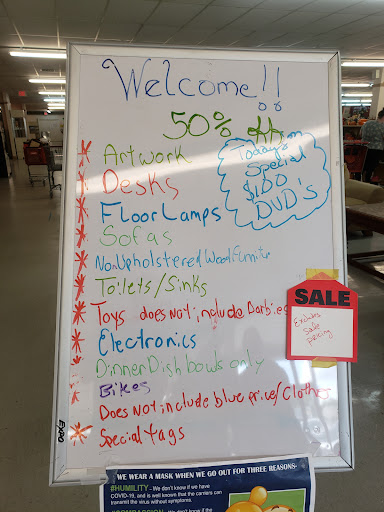 Welcome!!
50% off
Today's
Special
$1.00
DVD's
Artwork
Desks
Floor Lamps
Sofas
Non Upholstered Wood Furnitu
Toilets/Sinks
Toys does Not include Barbies
Electronics
Dinner Dish bowls only
Bikes
Does Not include blue price/Clothes
Special tags
SALE
Excludes
Sale
pricing
EXPO
WE WEAR A MASK WHEN WE GO OUT FOR THREE REASONS-
#HUMILITY - We don't know if we have
COVID-19, and is well known that the carriers can
transmit the virus without symptoms.
We don't know if the